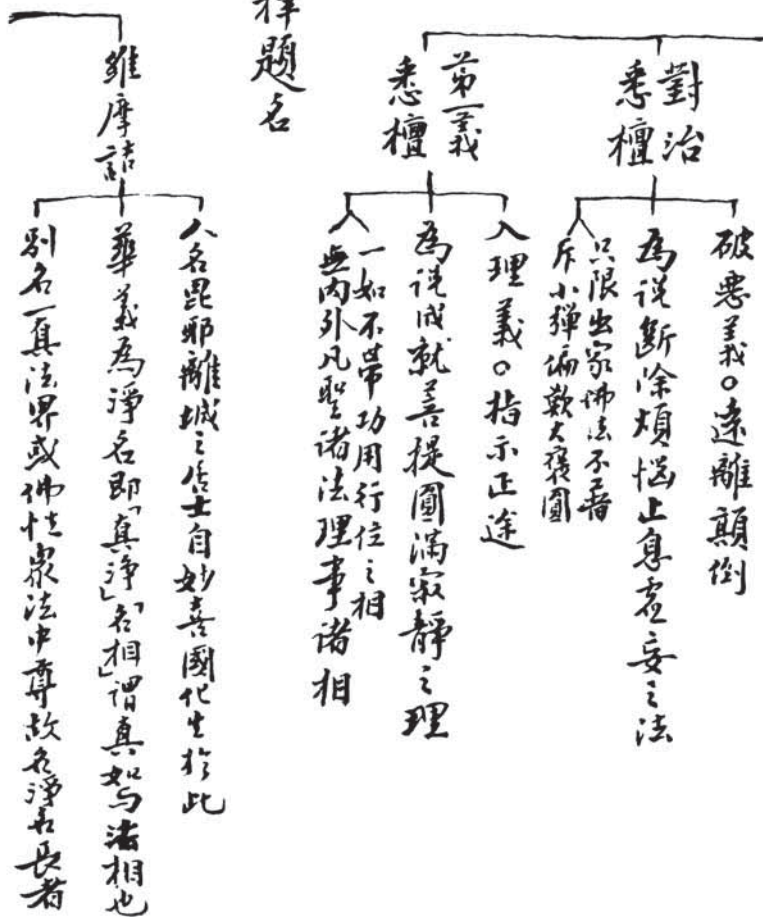 對治
悉檀
破惡義。遠離顛倒
為說斷除煩惱止息虛妄之法
只限出家佛法不普
斥小彈偏歎大襃圓
第一義
悉檀
入理義。指示正途
為說成就菩提圓滿寂靜之理
一如不帶功用行位之相
無內外凡聖諸法理事諸相
釋題名
維摩詰
人名毘耶離城之居士自妙喜國化生於此
華義為淨名即「真淨」「名相」謂真如与法相也
別名一真法界或佛性眾法中尊故名淨名長者